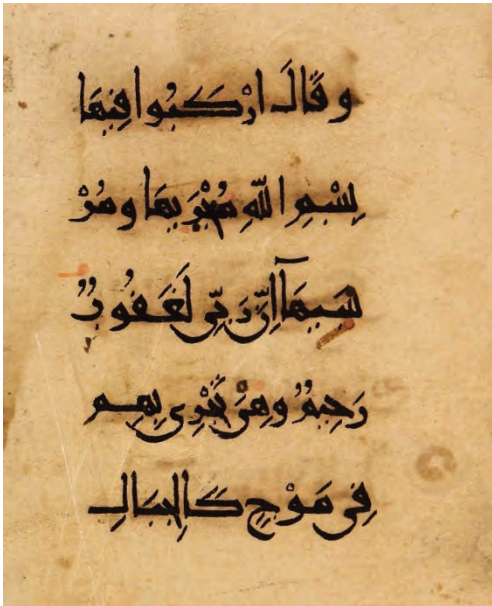 وَقَالَ ارْكَبُوا فِيهَا
بِسْمِ اللَّهِ مُجْرَيهَا وَمُرْ
سَيهَآ إِنَّ رَبِّي لَغَفُورٌ
رَحِيمٌ وَهِيَ تَجْرِي بِهِمْ
فِي مَوْجٍ كَالْجِبَالِ